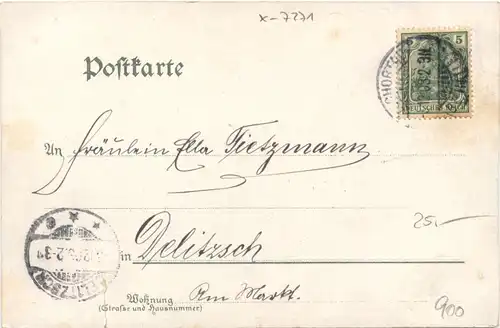 x-7271
Postkarte
5
An Fräulein Ella Tietzmann
25.—
in Delitzsch
Wohnung
(Straße und Hausnummer)
Am Markt.
900